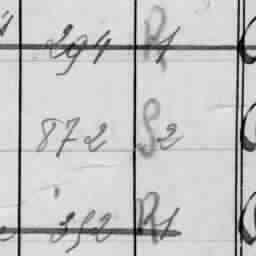 294 R1
872 S2
352 R1